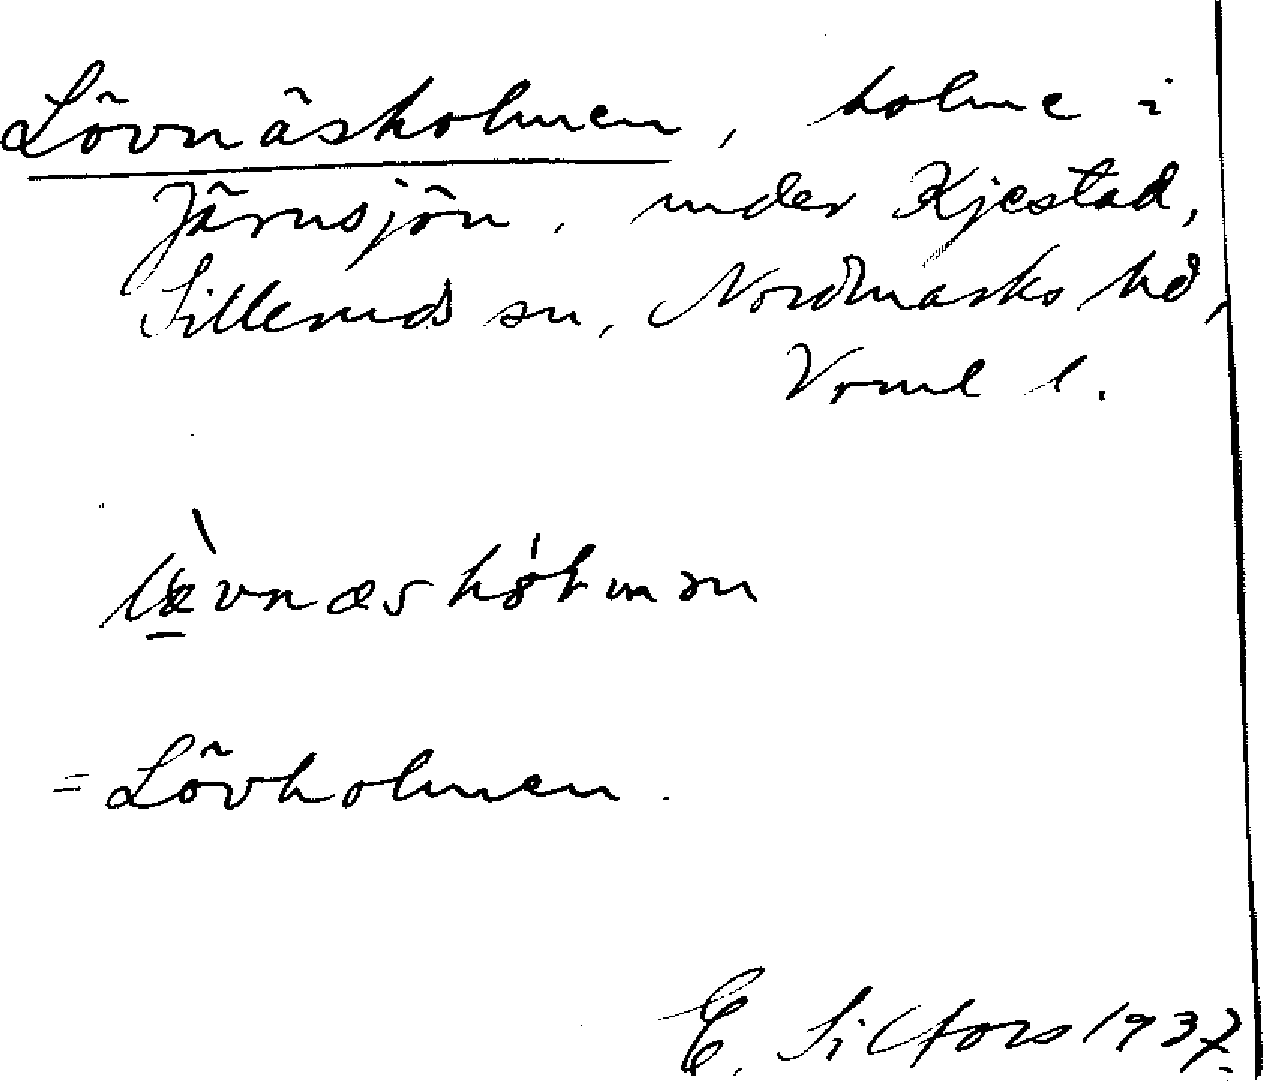 Lövnäsholmen, holme i
Järnsjön, under Kjestad,
Silleruds sn, Nordmarks hd,
Vrml l.
= Lövholmen.
E. Silfors 1937